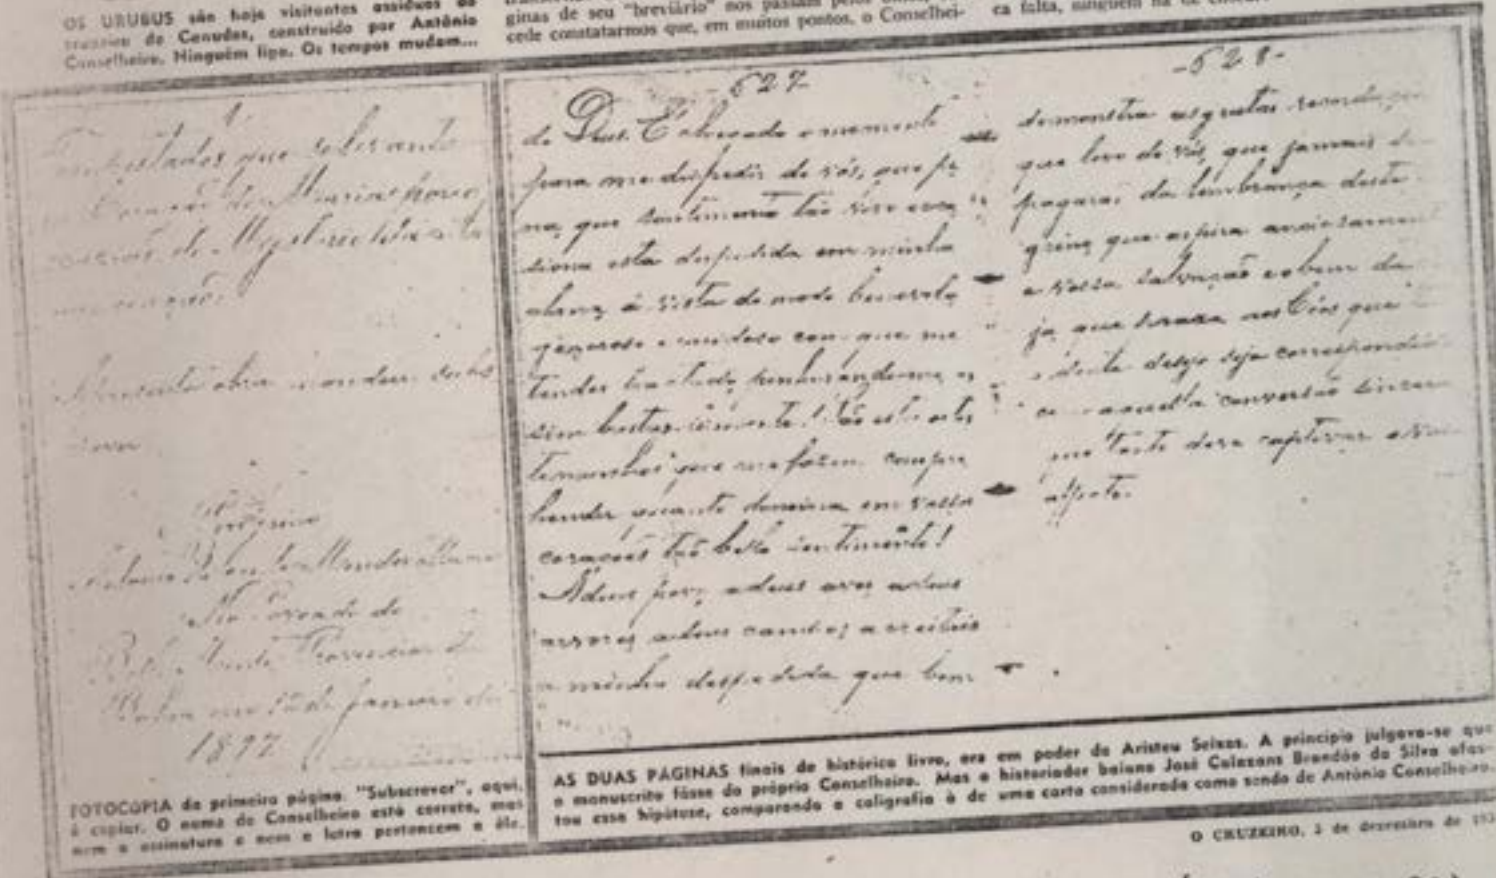 OS URUBUS são hoje visitantes assíduos do
cruzeiro de Canudos, construído por Antônio
Conselheiro. Ninguém liga. Os tempos mudam...
ginas de seu "breviário" nos passam pelos
cede constatarmos que, em muitos pontos, o Conselhei-
ca falta, ninguém há de
1
Tempestades que
Coração de Maria por
do Mysterio da
A presente obra mandou subs
crever
Peregrino
Antonio Vicente Mendes Maciel
No Povoado do
Bello Monte Provincia da
Bahia em de Janeiro de
1897
-627-
de Deus. É chegado o momento
para me despedir de vós; que pe
na, que sentimento tão vivo occa
siona esta despedida em minha
alma, á vista do modo benevolo
generoso e caridoso com que me
tendes tratado, penhorando-me as
sim bastantemente! São estes os tes
temunhos que me fazem compre
hender quanto domina em vossos
corações tão bello sentimento!
Adeus povo, adeus aves, adeus
arvores, adeus campos, acceitai
a minha despedida que bem
-628-
demonstra as gratas recordações
que levo de vós, que jamais se
pagarão da lembrança deste
grino que aspira anciosamente
a vossa salvação e o bem da
ja que praza aos Céos que
deste desejo seja correspondido
com aquella conversão sincera
que tanto deve captivar o vosso
affecto.
FOTOCÓPIA da primeira página. "Subscrever", aqui,
é copiar. O nome de Conselheiro está correto, mas
nem a assinatura e nem a letra pertencem a êle.
AS DUAS PÁGINAS finais do histórico livro, ora em poder de Aristeu Seixas. A princípio julgava-se que
o manuscrito fôsse do próprio Conselheiro. Mas o historiador baiano José Calazans Brandão da Silva afas-
tou essa hipótese, comparando a caligrafia à de uma carta considerada como sendo de Antônio Conselheiro.
O CRUZEIRO, 3 de dezembro de 195